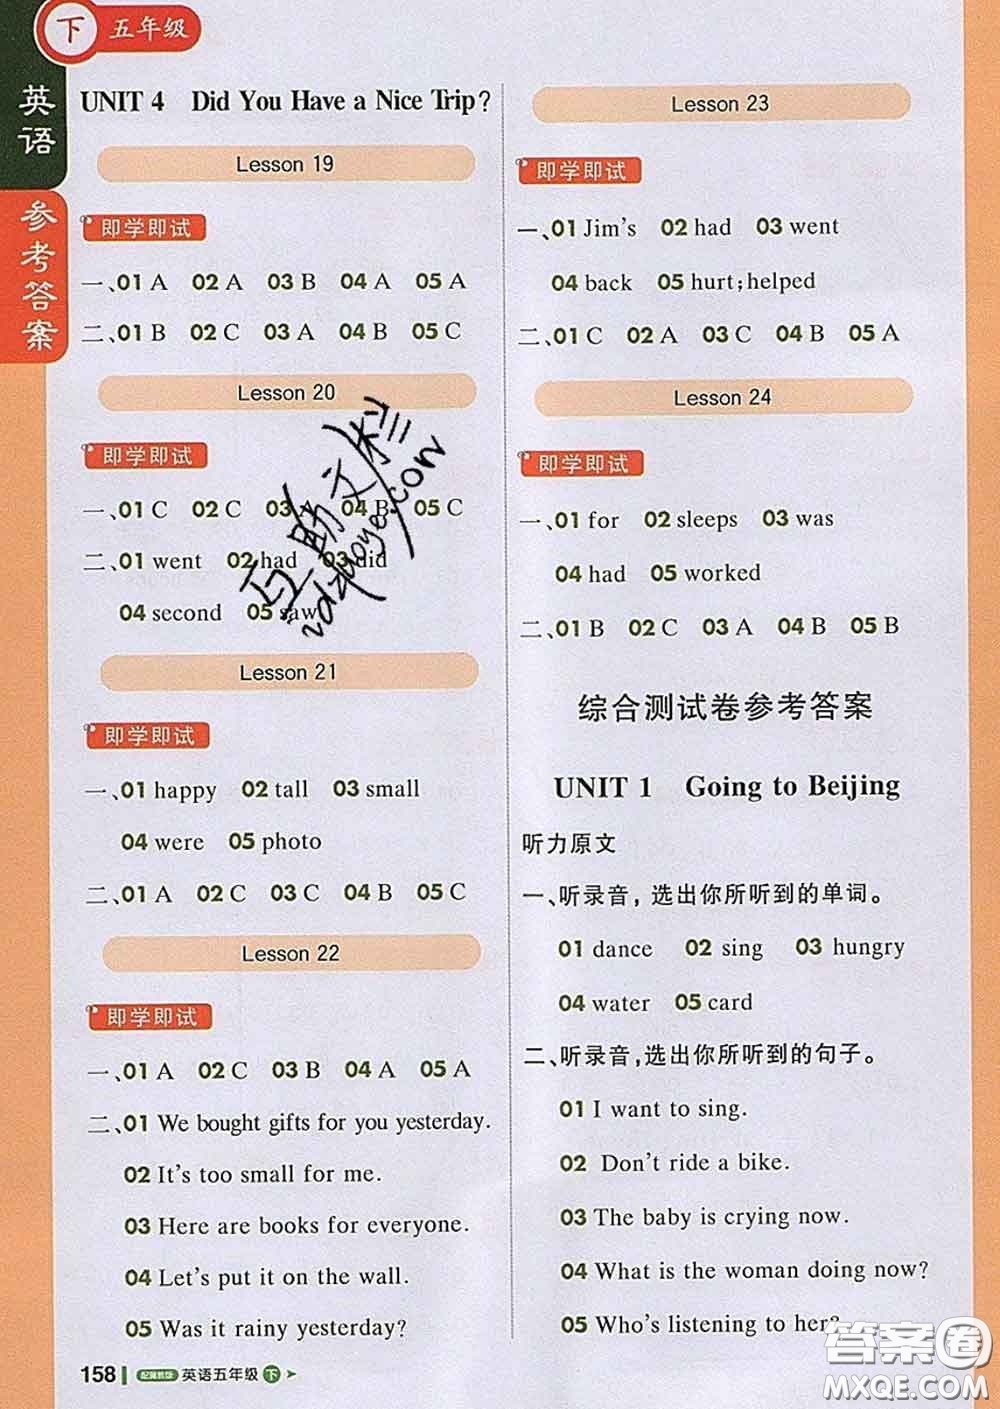 下 五年级
英语
参考答案
UNIT 4 Did You Have a Nice Trip?
Lesson 19
即学即试
一、01 A 02 A 03 B 04 A 05 A
二、01 B 02 C 03 A 04 B 05 C
Lesson 20
即学即试
一、01 C 02 C 03 A 04 B 05 C
二、01 went 02 had 03 did
04 second 05 saw
Lesson 21
即学即试
一、01 happy 02 tall 03 small
04 were 05 photo
二、01 A 02 C 03 C 04 B 05 C
Lesson 22
即学即试
一、01 A 02 C 03 B 04 A 05 A
二、01 We bought gifts for you yesterday.
02 It's too small for me.
03 Here are books for everyone.
04 Let's put it on the wall.
05 Was it rainy yesterday?
158 配冀教版 英语五年级 下
Lesson 23
即学即试
一、01 Jim's 02 had 03 went
04 back 05 hurt;helped
二、01 C 02 A 03 B 04 B 05 A
Lesson 24
即学即试
一、01 for 02 sleeps 03 was
04 had 05 worked
二、01 B 02 C 03 A 04 B 05 B
综合测试卷参考答案
UNIT 1 Going to Beijing
听力原文
一、听录音，选出你所听到的单词。
01 dance 02 sing 03 hungry
04 water 05 card
二、听录音,选出你所听到的句子。
01 I want to sing.
02 Don't ride a bike.
03 The baby is crying now.
04 What is the woman doing now?
05 Who's listening to her?
答案圈
MXQE.COM